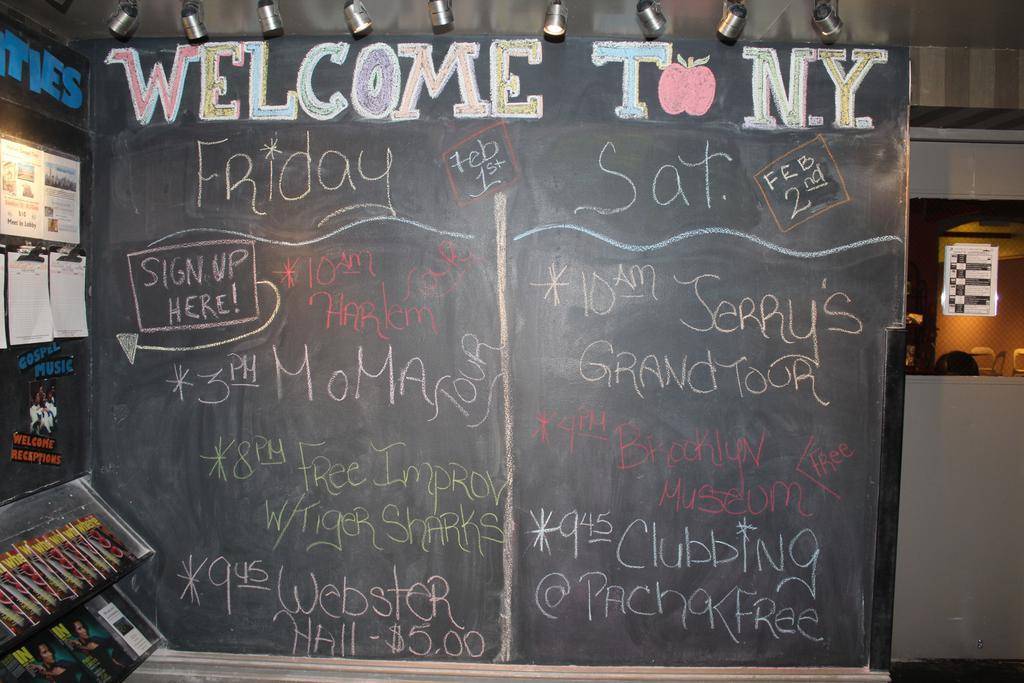 WELCOME TO NY
Friday
Feb
1st
SIGN UP
HERE!
*10AM
Harlem
Tour
*3PM MoMA Tour
*8PM Free Improv
W/Tiger Sharks
*945 Webster
Hall - $5.00
Sat.
FEB
2nd
*10AM Jerry's
Grand Tour
*4PM Brooklyn
Museum
Free
*945 Clubbing
@ Pacha
Free
TIES
Meet in Lobby
GOSPEL
MUSIC
WELCOME
RECEPTIONS